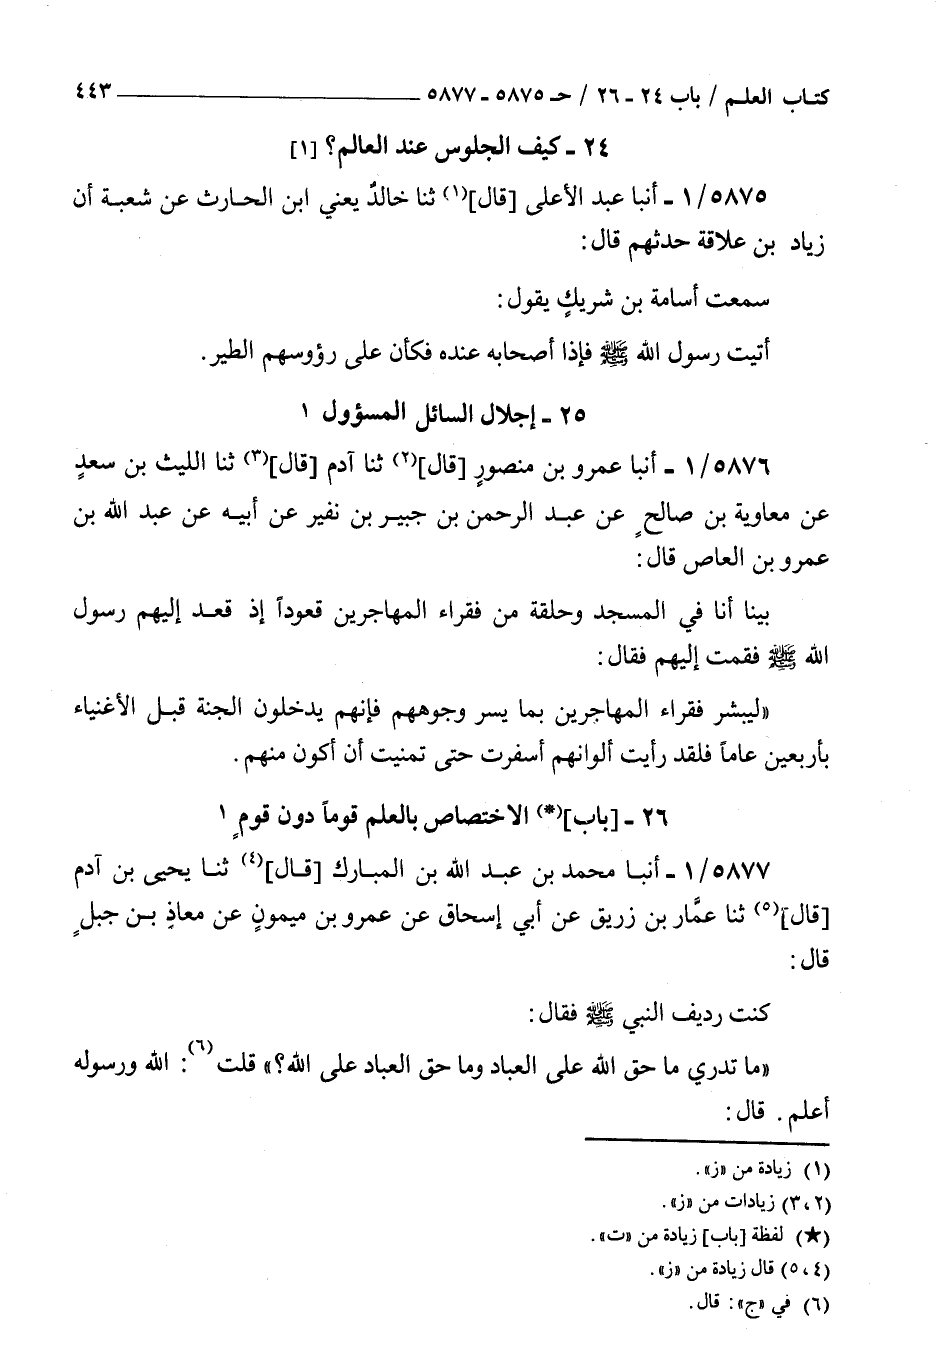 كتاب العلم / باب ٢٤ - ٢٦ / حـ ٥٨٧٥ - ٥٨٧٧ ٤٤٣
٢٤ - كيف الجلوس عند العالم؟ [١]
١/٥٨٧٥ - أنبا عبد الأعلى [قال](١) ثنا خالدٌ يعني ابن الحارث عن شعبة أن
زياد بن علاقة حدثهم قال:
سمعت أسامة بن شريكٍ يقول:
أتيت رسول الله ﷺ فإذا أصحابه عنده فكأن على رؤوسهم الطير.
٢٥ - إجلال السائل المسؤول ١
١/٥٨٧٦ - أنبا عمرو بن منصورٍ [قال](٢) ثنا آدم [قال](٣) ثنا الليث بن سعدٍ
عن معاوية بن صالحٍ عن عبد الرحمن بن جبير بن نفير عن أبيه عن عبد الله بن
عمرو بن العاص قال:
بينا أنا في المسجد وحلقة من فقراء المهاجرين قعوداً إذ قعد إليهم رسول
الله ﷺ فقمت إليهم فقال:
«ليبشر فقراء المهاجرين بما يسر وجوههم فإنهم يدخلون الجنة قبل الأغنياء
بأربعين عاماً فلقد رأيت ألوانهم أسفرت حتى تمنيت أن أكون منهم.
٢٦ - [باب](*) الاختصاص بالعلم قوماً دون قومٍ ١
١/٥٨٧٧ - أنبا محمد بن عبد الله بن المبارك [قال](٤) ثنا يحيى بن آدم
[قال](٥) ثنا عمَّار بن زريق عن أبي إسحاق عن عمرو بن ميمونٍ عن معاذِ بن جبلٍ
قال:
كنت رديف النبي ﷺ فقال:
«ما تدري ما حق الله على العباد وما حق العباد على الله؟» قلت(٦): الله ورسوله
أعلم. قال:
(١) زيادة من «ز».
(٣،٢) زيادات من «ز».
(★) لفظة [باب] زيادة من «ت».
(٥،٤) قال زيادة من «ز».
(٦) في «ج»: قال.